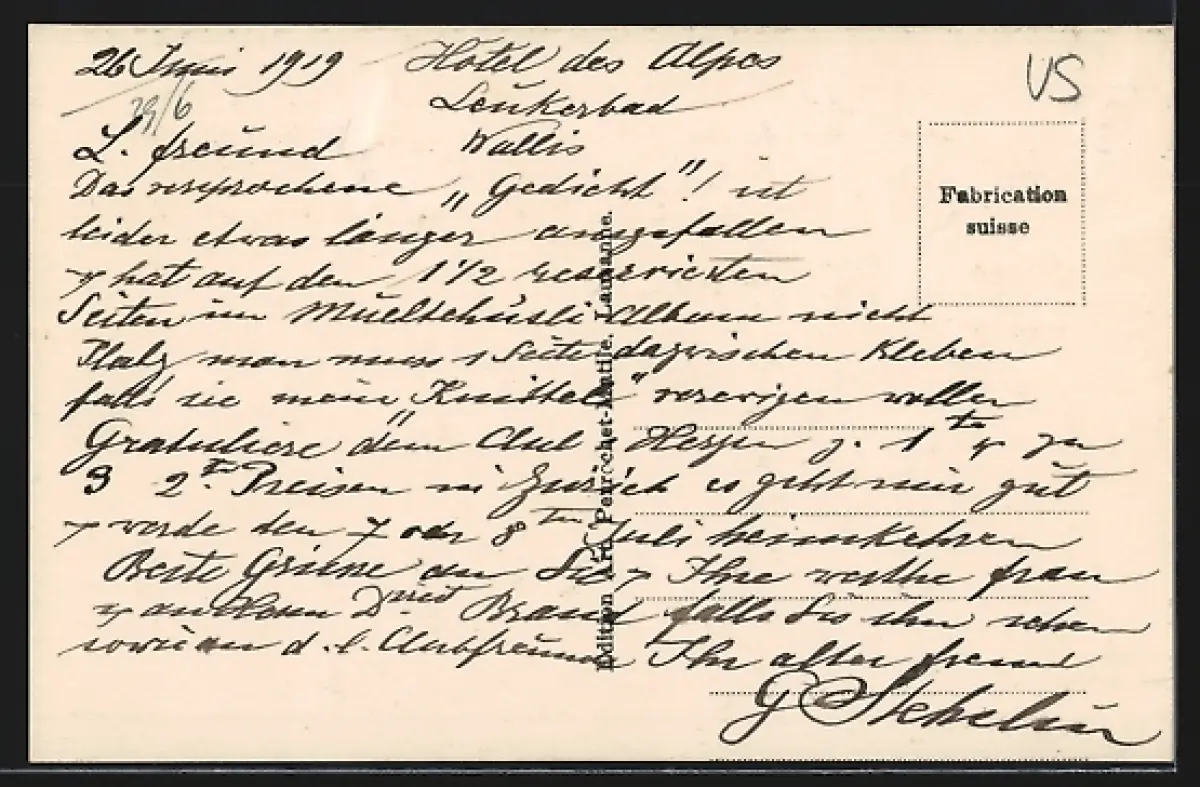 26 Juni 1919 Hotel des Alpes
29/6 Leukerbad
L. freund Wallis
VS
Das versprochene „Gedicht"! ist
leider etwas länger ausgefallen
& hat auf den 1 1/2 reservierten
Seiten im Album nicht
Platz man muss 1 Seite dazwischen kleben
falls sie meine „Knittel" verewigen wollen
Gratuliere dem Club z. 1ten & zu
3 2ten Preisen in Zürich es geht mir gut
& werde den 7 oder 8ten Juli heimkehren
Beste Grüsse an Sie & Ihre werthe frau
& an Herrn Brand falls Sie ihn sehen
sowie an d. l. Clubfreunde Ihr alter freund
G Stehelin
Fabrication
suisse
Edition Art. Perrochet-Matile, Lausanne.